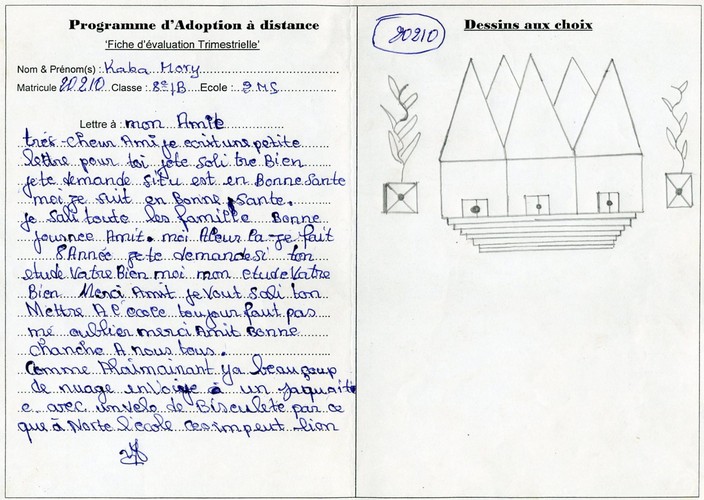 Programme d'Adoption à distance
'Fiche d'évaluation Trimestrielle'
Nom & Prénom(s) : Kaba Mory
Matricule 20210 Classe : 8e/B Ecole :
Lettre à : mon Amit
très-Cheur Ami je ecrit une petite
lettre pour toi jete soli tre Bien
je te demande si tu est en Bonne sante
moi ze suit en Bonne sante.
je soli toute les famille Bonne
journee Amit. moi Aleur la je fait
8Année je te demande si ton
etude Vatre Bien moi mon etude Vatre
Bien Merci Amit je Vout soli ton
Mettre A l'ecole toujour faut pas
me oublier merci Amit Bonne
chanche A nous tous.
Comme Alaimainant ya beauçoup
de nuage envoije à un Jaquaite
e avec un velo de Bisculete par ce
que à Norte l'école ces impeut lien
Dessins aux choix
20210